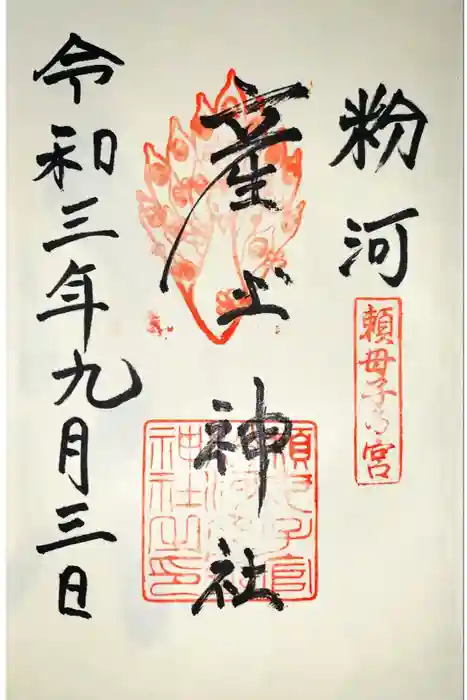 粉河
頼母子の宮
産土神社
令和三年九月三日
頼母子宮
神社之印